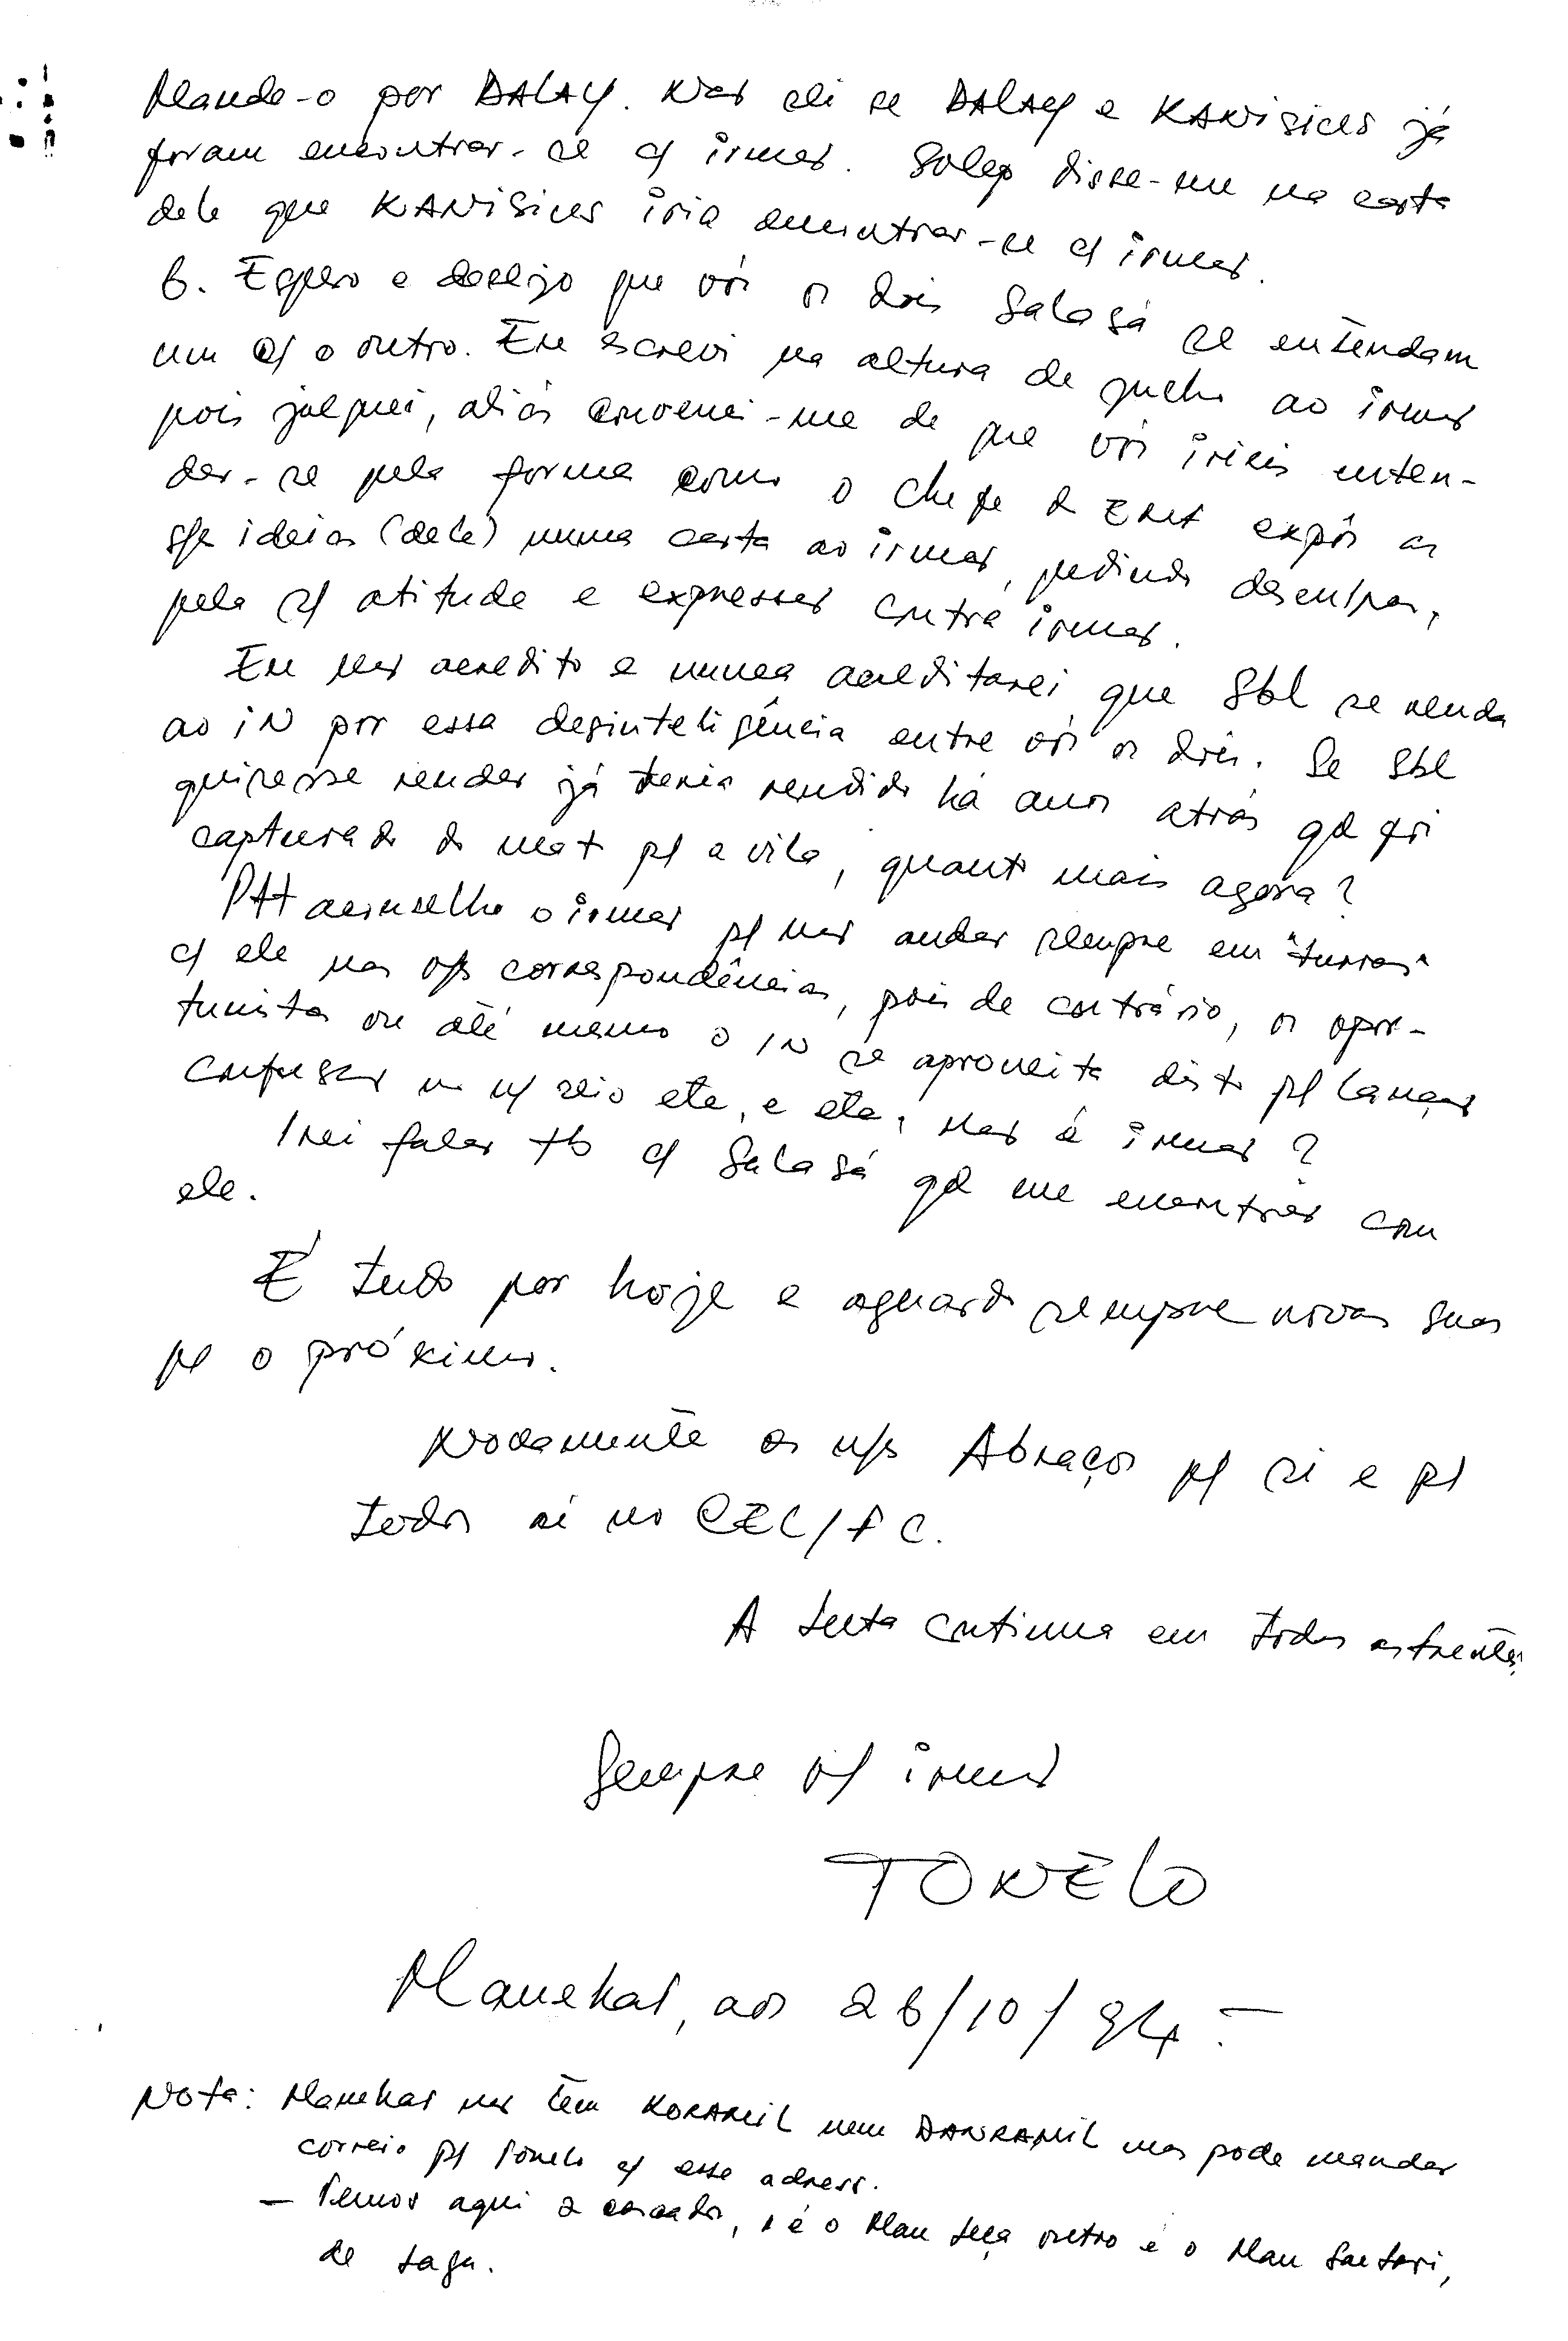 Mande-o por DALAY. Não sei se DALAY e KANISIUS já
foram encontrar-se c/ irmão. Solep disse-me na carta
dele que KANISIUS iria encontrar-se c/ irmão.
6. Espero e desejo que vós os dois Salasá se entendam
um c/ o outro. Eu escrevi na altura de julho ao irmão
pois julguei, aliás convenci-me de que vós irieis enten-
der-se pela forma como o chefe d EMF expôs as
s/s ideias (dele) numa carta ao irmão, pedindo desculpas,
pela s/ atitude e expressões contra irmão.
Eu não acredito e nunca acreditarei que Sbl se renda
ao iN por essa desinteligência entre vós os dois. Se Sbl
quizesse render já teria rendido há anos atrás qd foi
capturado do mato p/ a vila, quanto mais agora?
PAH aconselho o irmão p/ não andar sempre em "turras"
c/ ele nas v/s correspondências, pois de contrário, os opor-
tunistas ou até mesmo o iN se aproveita disto p/ lançar
confusão no n/ seio etc, e etc, não é irmão?
Irei falar tb c/ Salasá qd me encontrar com
ele.
É tudo por hoje e aguardo sempre novas suas
p/ o próximo.
Novamente os n/s Abraços p/ si e p/
todos aí no CEL/FC.
A luta continua em todas as frentes
Sempre v/ irmão
TONELO
Manehat, aos 26/10/94.-
Nota: Manehat não tem KORAMIL nem DANRAMIL mas pode mandar
correio p/ Tonelo c/ esse adress.
- Temos aqui 2, 1 é o Mau outro é o Mau
de